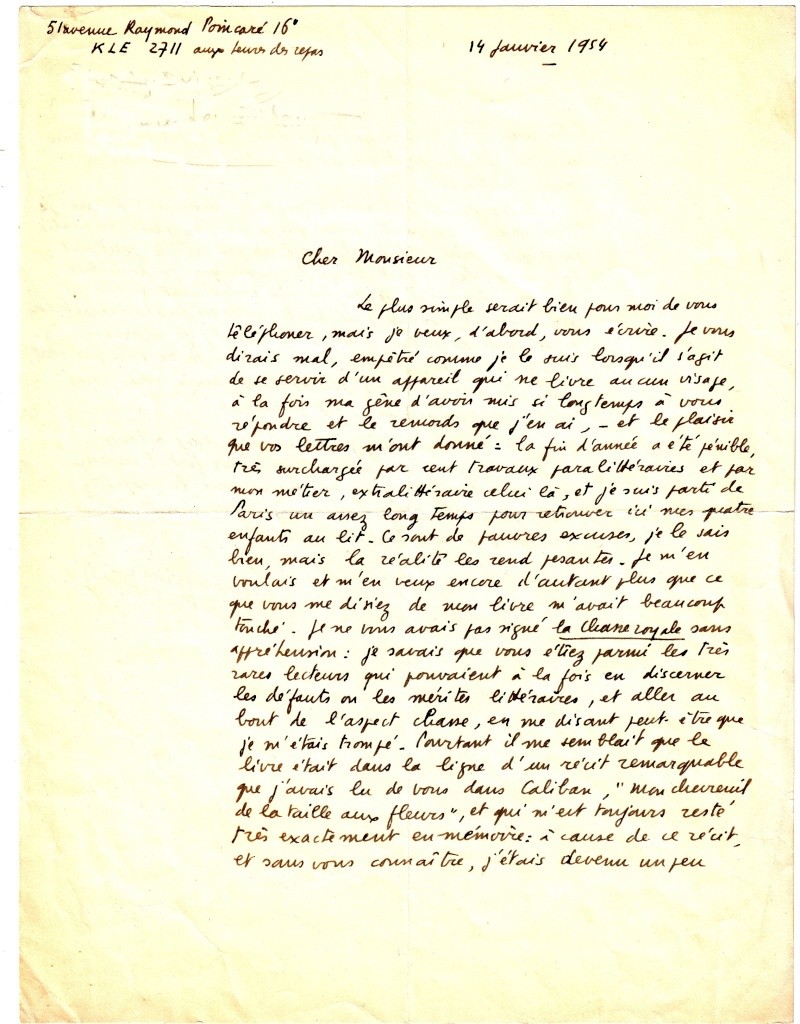 51 avenue Raymond Poincaré 16°
KLE 2711 aux heures des repas
14 Janvier 1954
Cher Monsieur
Le plus simple serait bien pour moi de vous
téléphoner, mais je veux, d'abord, vous écrire. Je vous
dirais mal, empêtré comme je le suis lorsqu'il s'agit
de se servir d'un appareil qui ne livre aucun visage,
à la fois ma gêne d'avoir mis si longtemps à vous
répondre et le remords que j'en ai, - et le plaisir
que vos lettres m'ont donné : la fin d'année a été pénible,
très surchargée par cent travaux paralittéraires et par
mon métier, extralittéraire celui là, et je suis parti de
Paris un assez long temps pour retrouver ici mes quatre
enfants au lit. Ce sont de pauvres excuses, je le sais
bien, mais la réalité les rend pesantes. Je m'en
voulais et m'en veux encore d'autant plus que ce
que vous me disiez de mon livre m'avait beaucoup
touché. Je ne vous avais pas signé la Chasse royale sans
appréhension : je savais que vous étiez parmi les très
rares lecteurs qui pouvaient à la fois en discerner
les défauts ou les mérites littéraires, et aller au
bout de l'aspect chasse, en me disant peut-être que
je m'étais trompé. Pourtant il me semblait que le
livre était dans la ligne d'un récit remarquable
que j'avais lu de vous dans Caliban, "mon chevreuil
de la taille aux fleurs", et qui m'est toujours resté
très exactement en mémoire : à cause de ce récit,
et sans vous connaître, j'étais devenu un peu